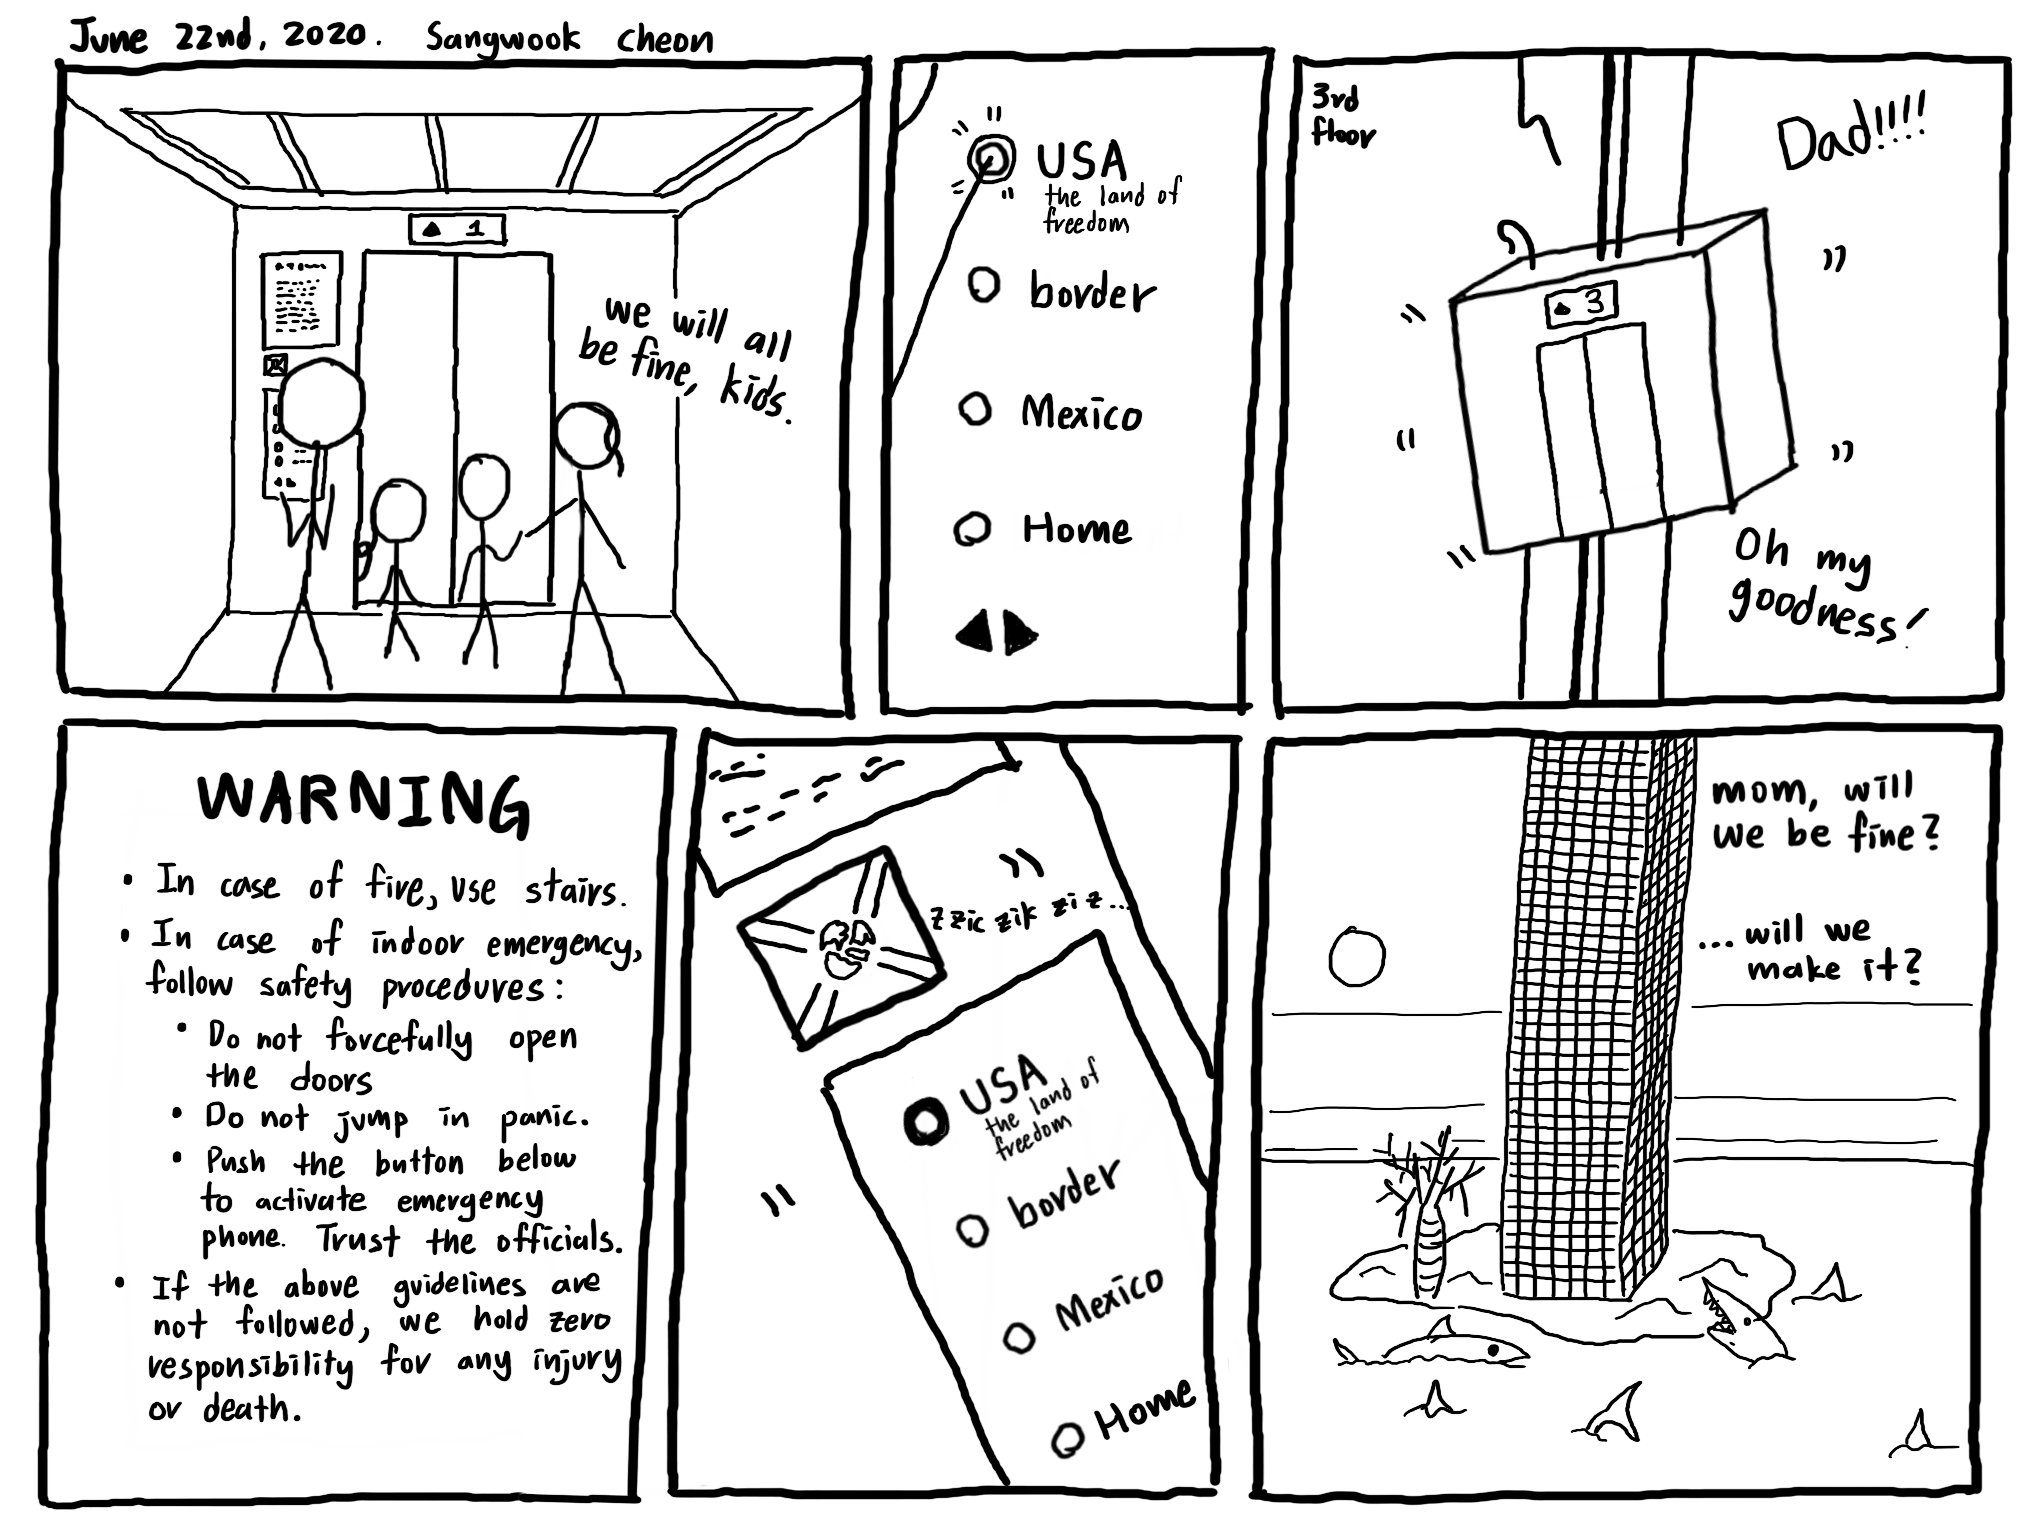 June 22nd, 2020. Sangwook Cheon
1
we will all
be fine, kids.
USA
the land of
freedom
border
Mexico
Home
3rd
floor
Dad!!!!
3
Oh my
goodness!
WARNING
• In case of fire, use stairs.
• In case of indoor emergency,
follow safety procedures:
• Do not forcefully open
the doors
• Do not jump in panic.
• Push the button below
to activate emergency
phone. Trust the officials.
• If the above guidelines are
not followed, we hold zero
responsibility for any injury
or death.
zzic zik ziz...
USA
the land of
freedom
border
Mexico
Home
mom, will
we be fine?
... will we
make it?